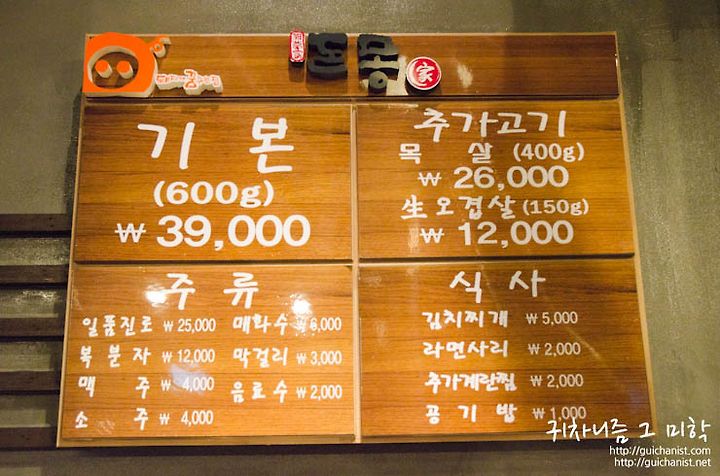 돈몽 家
기본
(600g)
₩ 39,000
추가고기
목 살 (400g)
₩ 26,000
生오겹살 (150g)
₩ 12,000
주류
일품진로 ₩ 25,000
복분자 ₩ 12,000
맥 주 ₩ 4,000
소 주 ₩ 4,000
매화수 ₩ 6,000
막걸리 ₩ 3,000
음료수 ₩ 2,000
식사
김치찌개 ₩ 5,000
라면사리 ₩ 2,000
추가계란찜 ₩ 2,000
공기밥 ₩ 1,000
귀차니즘 그 미학
http://guichanist.com
http://guichanist.net